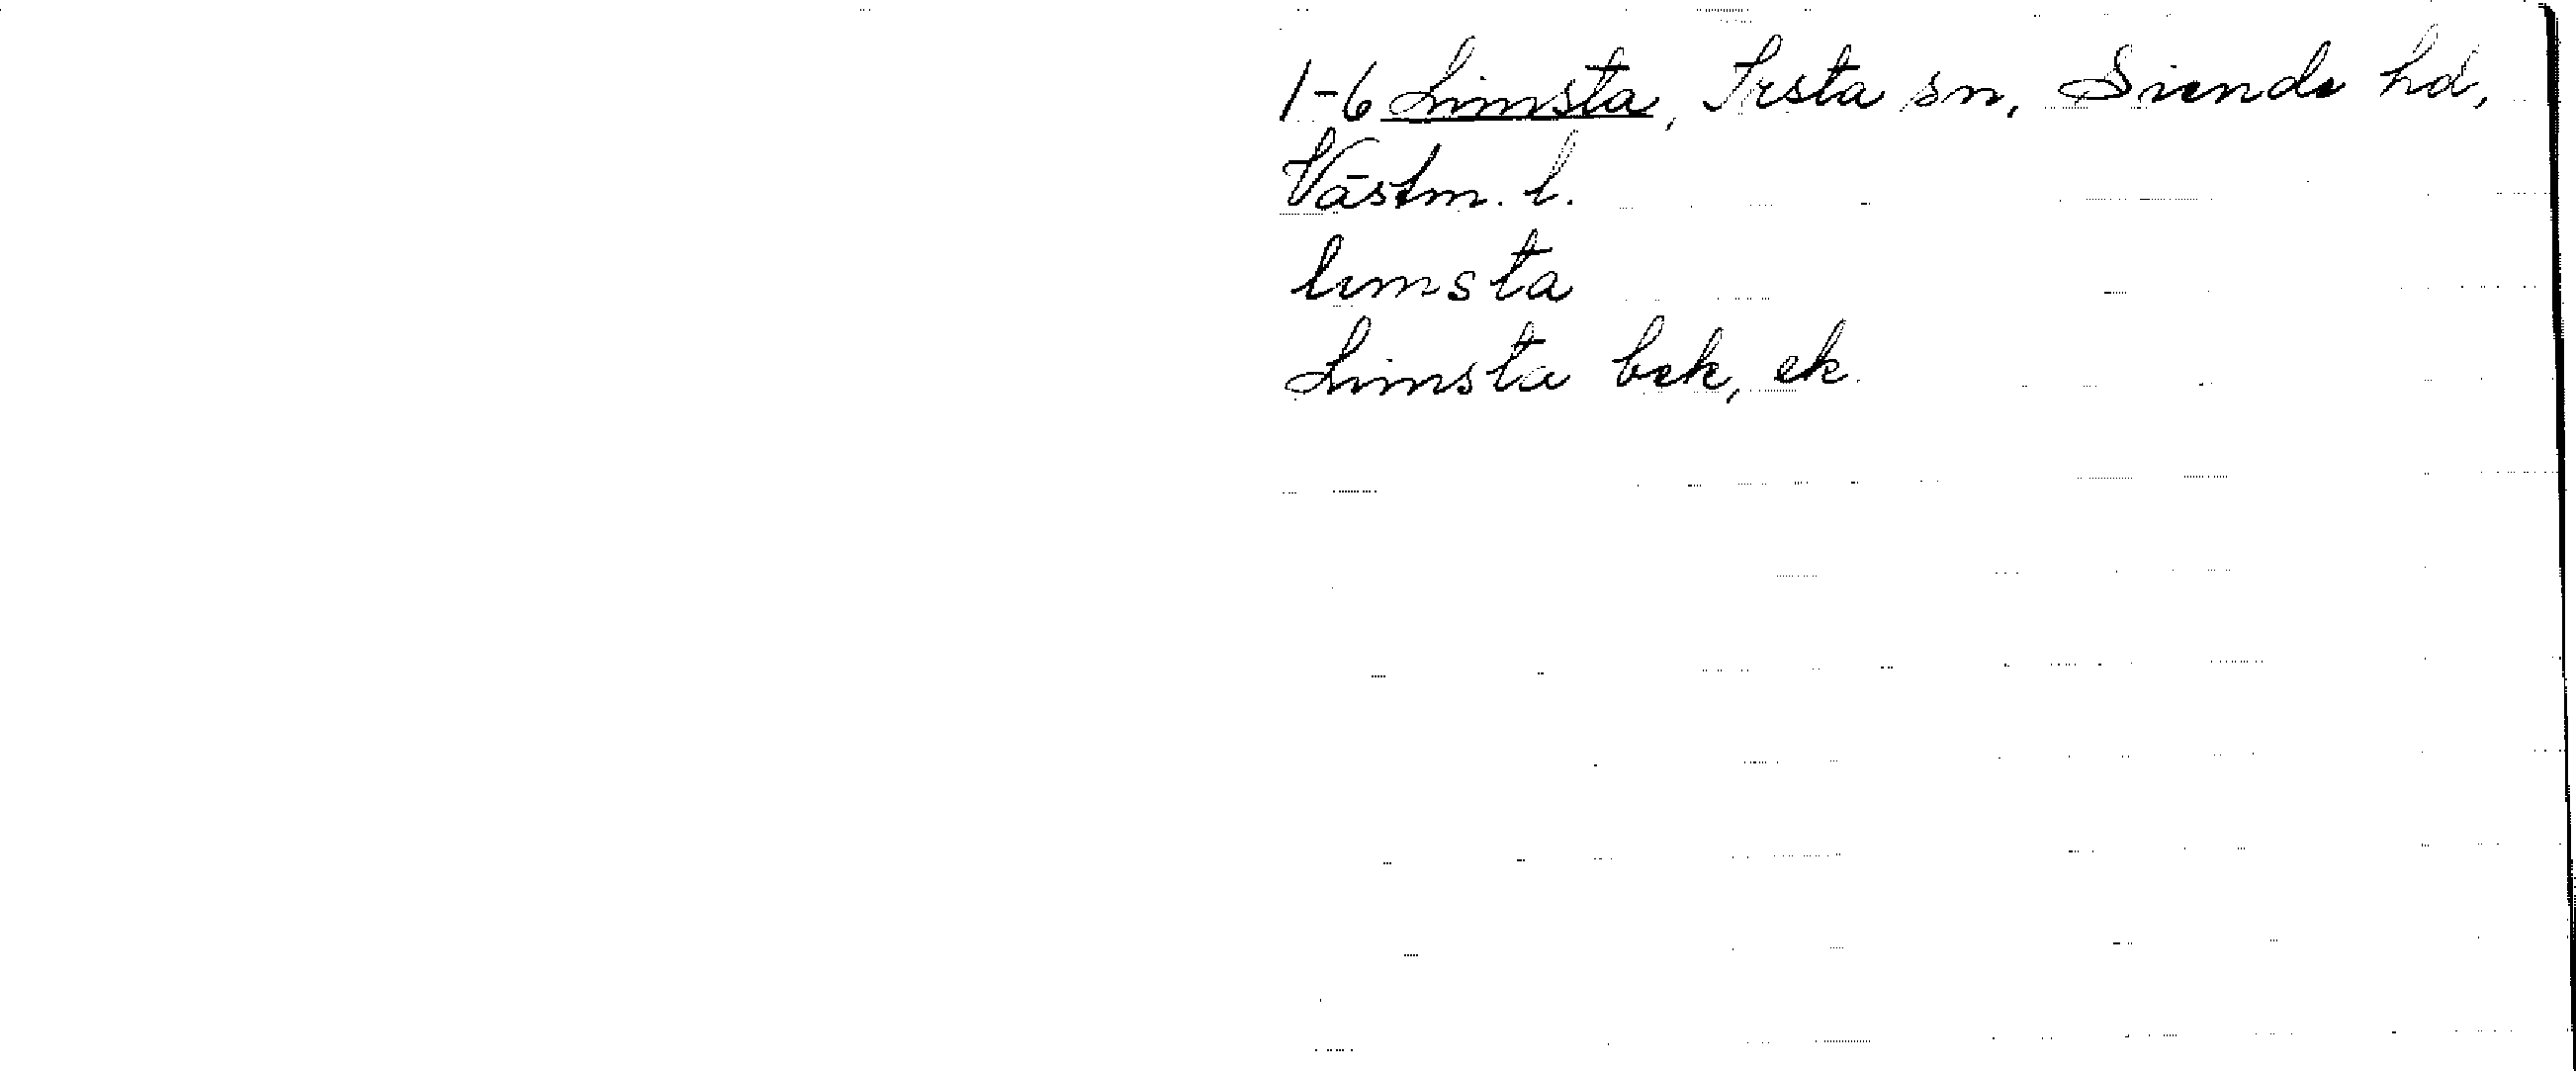 1-6 Limsta, Irsta sn, Siende hd,
Västm. l.
lımsta
Limsta bek, ek.